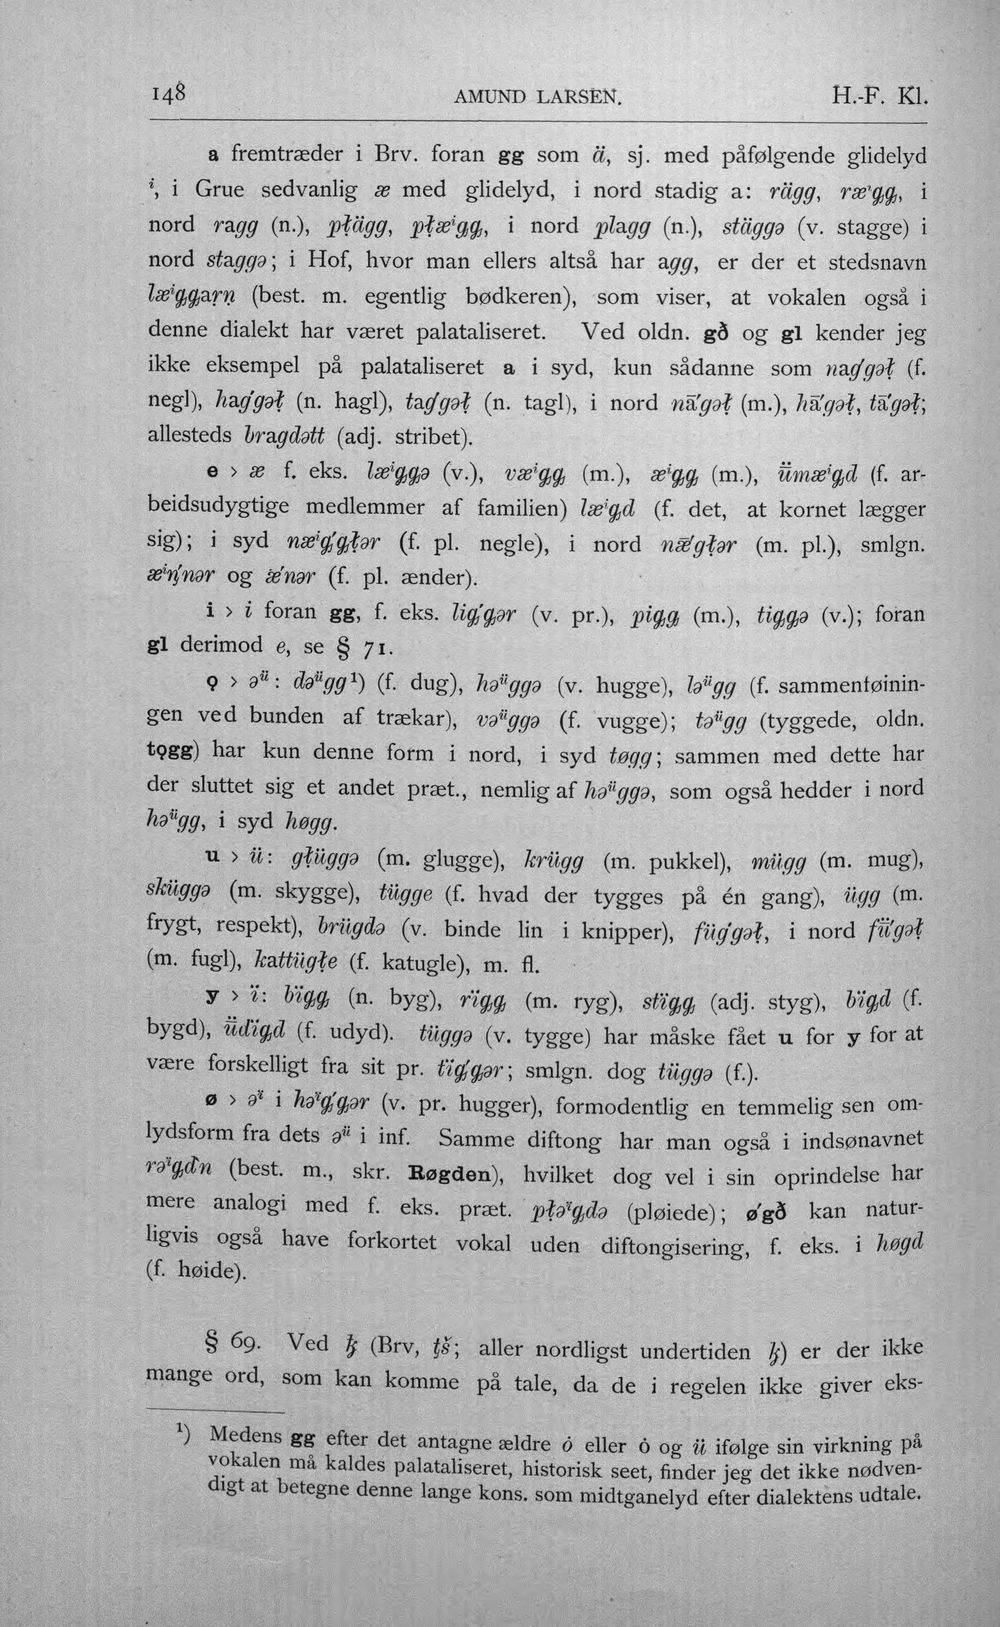 148 AMUND LARSEN. H.-F. Kl.
a fremtræder i Brv. foran gg som ä, sj. med påfølgende glidelyd
ⁱ, i Grue sedvanlig æ med glidelyd, i nord stadig a: rägg, ræⁱᶃᶃ, i
nord ragg (n.), płägg, płæⁱᶃᶃ, i nord plagg (n.), stäggə (v. stagge) i
nord staggə; i Hof, hvor man ellers altså har agg, er der et stedsnavn
læⁱᶃᶃaṛṇ (best. m. egentlig bødkeren), som viser, at vokalen også i
denne dialekt har været palataliseret. Ved oldn. gð og gl kender jeg
ikke eksempel på palataliseret a i syd, kun sådanne som nag'gəł (f.
negl), hag'gəł (n. hagl), tag'gəł (n. tagl), i nord nā'gəł (m.), hā'gəł, tā'gəł;
allesteds bragdətt (adj. stribet).
e > æ f. eks. læⁱᶃᶃə (v.), væⁱᶃᶃ (m.), æⁱᶃᶃ (m.), ümæⁱᶃd (f. ar-
beidsudygtige medlemmer af familien) læⁱᶃd (f. det, at kornet lægger
sig); i syd næⁱᶃ'ᶃłər (f. pl. negle), i nord nǣ'głər (m. pl.), smlgn.
æⁱŋ'nər og æ'nər (f. pl. ænder).
i > i foran gg, f. eks. liᶃ'ᶃər (v. pr.), piᶃᶃ (m.), tiᶃᶃə (v.); foran
gl derimod e, se § 71.
ǫ > əᵘ̈: dəᵘ̈gg¹) (f. dug), həᵘ̈ggə (v. hugge), ləᵘ̈gg (f. sammenføinin-
gen ved bunden af trækar), vəᵘ̈ggə (f. vugge); təᵘ̈gg (tyggede, oldn.
tǫgg) har kun denne form i nord, i syd tøgg; sammen med dette har
der sluttet sig et andet præt., nemlig af həᵘ̈ggə, som også hedder i nord
həᵘ̈gg, i syd høgg.
u > ü: głüggə (m. glugge), krügg (m. pukkel), mügg (m. mug),
sküggə (m. skygge), tügge (f. hvad der tygges på én gang), ügg (m.
frygt, respekt), brügdə (v. binde lin i knipper), füg'gəł, i nord fǖ'gəł
(m. fugl), kattügłe (f. katugle), m. fl.
y > ï: bïᶃᶃ (n. byg), rïᶃᶃ (m. ryg), stïᶃᶃ (adj. styg), bïᶃd (f.
bygd), üdïᶃd (f. udyd). tüggə (v. tygge) har måske fået u for y for at
være forskelligt fra sit pr. tïᶃ'ᶃər; smlgn. dog tüggə (f.).
ø > əⁱ̈ i həⁱ̈ᶃ'ᶃər (v. pr. hugger), formodentlig en temmelig sen om-
lydsform fra dets əᵘ̈ i inf. Samme diftong har man også i indsønavnet
rəⁱ̈ᶃd'n (best. m., skr. Røgden), hvilket dog vel i sin oprindelse har
mere analogi med f. eks. præt. płəⁱ̈ᶃdə (pløiede); ø'gð kan natur-
ligvis også have forkortet vokal uden diftongisering, f. eks. i høgd
(f. høide).
§ 69. Ved ꝁ (Brv, ṭš; aller nordligst undertiden ) er der ikke
mange ord, som kan komme på tale, da de i regelen ikke giver eks-
¹) Medens gg efter det antagne ældre ó eller ȯ og ü ifølge sin virkning på
vokalen må kaldes palataliseret, historisk seet, finder jeg det ikke nødven-
digt at betegne denne lange kons. som midtganelyd efter dialektens udtale.